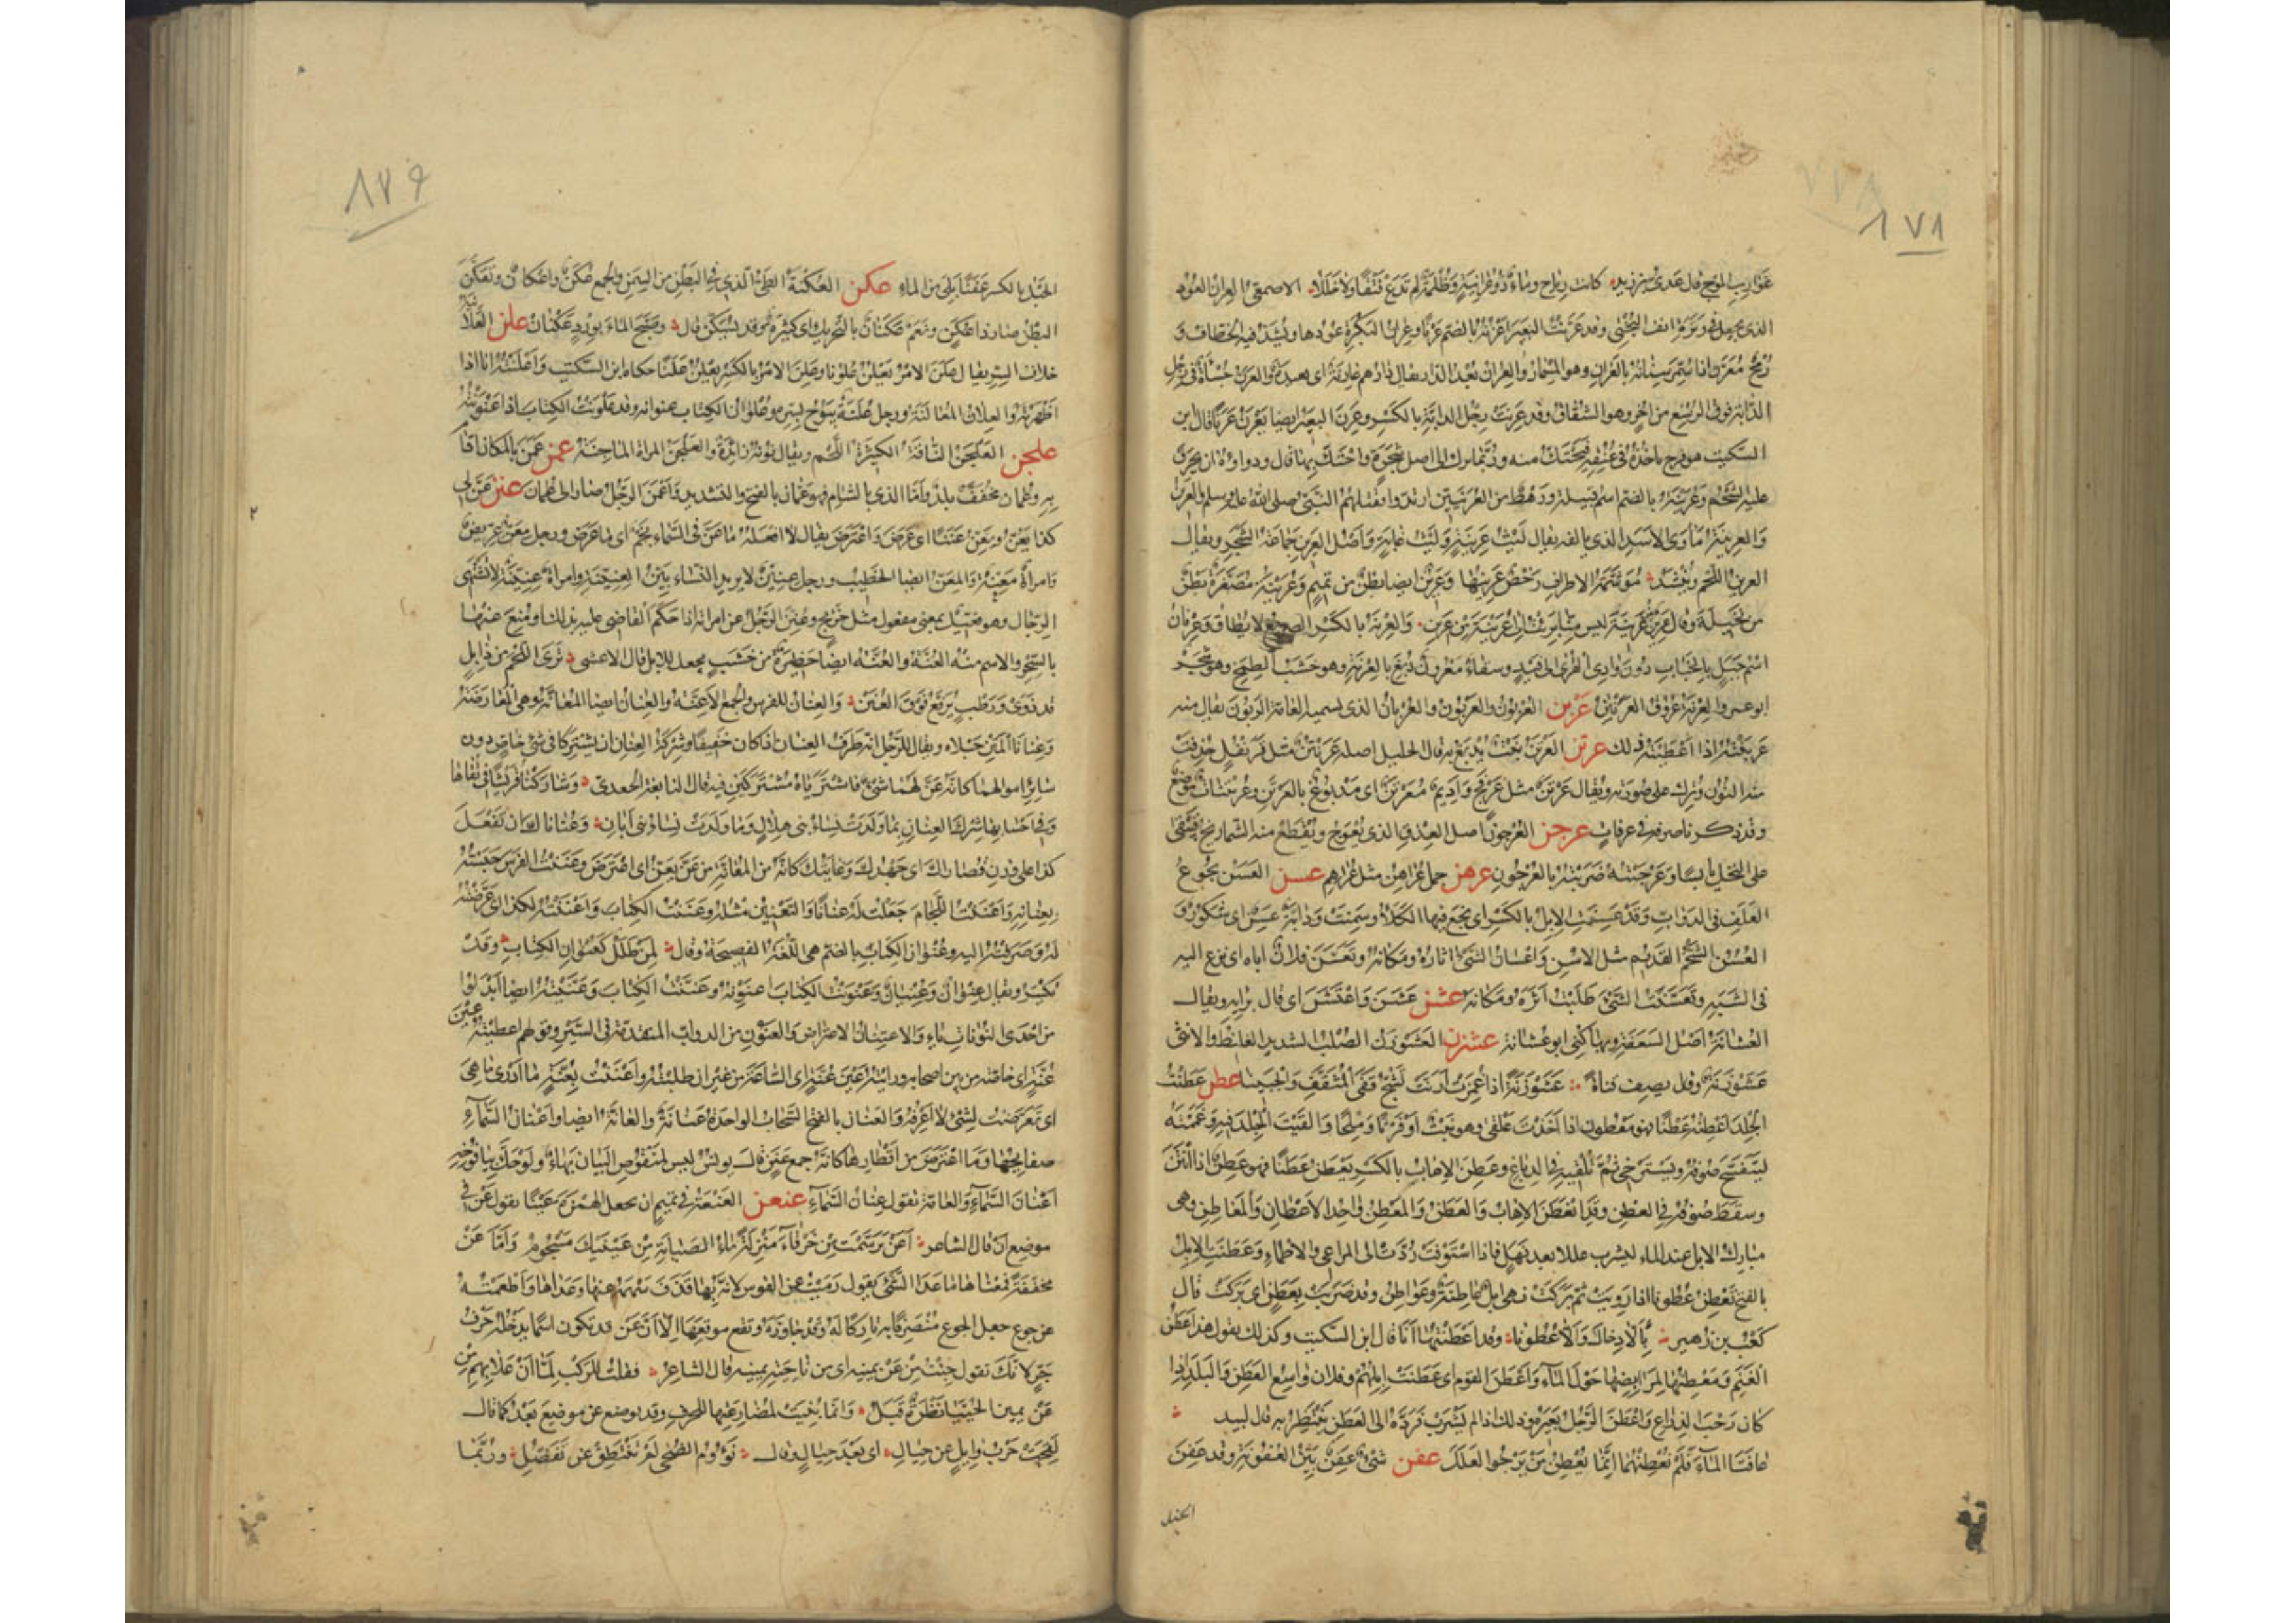 ٨٧٨
غوارب الموج قال عدي بن زيد كانت رياح وماء ذو عرانية وظلمة لم تدع فتقا ولا خللا الاصمعي العران العود
الذي يجعل في وترة انف البختي وقد عرنت البعير اعرنه بالضم عرنا وعران البكرة عودها ويشد فيه الخطاف و
رمح معرن اذا سمر سنانه بالعران وهو المسمار والعران بعد الدار يقال دارهم عارنة اى بعيدة والعرن جسأة في رجل
الدابة فوق الرسغ من اخر وهو الشقاق وقد عرنت رجل الدابة بالكسر وعرن البعير ايضا يعرن عرنا قال ابن
السكيت هو قرح ياخذه في عنقه فيحتك منه وربما برك الى اصل شجرة واحتك بها قال ودواؤه ان يحرق
عليه الشحم وعرينة بالضم اسم قبيلة ورهط من العرنيين ارتدوا فقتلهم النبي صلى الله عليه وسلم والعرين
والعرينة مأوى الاسد الذي يالفه يقال ليث عرينة وليث غابة واصل العرين جماعة الشجر ويقال
العرين اللحم وينشد موشمة الاطراف رخص عرينها وعرين ايضا بطن من تميم وعرينة مصغرة بطن
من بجيلة وقال عرين من عرينة ليس منا برئت الى عرينة من عرين والعرنة بالكسر الصريع لا يطاق وعرنان
اسم جبل بالجناب دون وادي القرى الى فيد وسقاء معرون دبغ بالعرنة وهو خشب الظمخ وهو شجر
ابو عمرو العرنة عروق العرتن عربن العربون والعربون والعربان الذي تسميه العامة الربون يقال منه
عربنته اذا اعطيته ذلك عرتن العرتن نبت يدبغ به قال الخليل اصله عرنتن مثل قرنفل حذفت
منه النون وترك على صورته ويقال عرتن مثل عرفج واديم معرتن اى مدبوغ بالعرتن وعريتنات موضع
وقد ذكرناصرفه في عرفات عرجن العرجون اصل العذق الذي يعوج ويقطع منه الشماريخ فيبقى
على النخل يابسا وعرجنه ضربته بالعرجون عرهن جمل عراهن مثل عراهم عسن العسن نجوع
العلف في الدواب وقد عسنت الابل بالكسر اى نجع فيها الكلأ وسمنت ودابة عسن اى شكور و
العسن الشحم القديم مثل الاسن واعسان الشئ اثاره ومكانه وتعسن فلان اباه اى نزع اليه
في الشبه وتعسنت الشئ طلبت اثره ومكانه عشن عشن واعتشن اى قال برايه ويقال
العشانة اصل السعفة وبها كني ابو عشانة عشزن العشوزن الصلب الشديد الغليظ والانثى
عشوزنة وقال يصف قناة عشوزنة اذا غمزت ارنت تشج قفى المثقف والجبينا عطن عطنت
الجلد اعطنه عطنا فهو معطون اذا اخذت علقى وهو نبت او فرثا وملحا والقيت الجلد فيه وغممته
ليتفسح صوفه ويسترخى ثم تلقيه في الدباغ وعطن الاهاب بالكسر يعطن عطنا فهو عطن اذا انتن
وسقط صوفه في العطن وقد انعطن الاهاب والعطن والمعطن واحد الاعطان والمعاطن وهى
مبارك الابل عند الماء لتشرب عللا بعد نهل فاذا استوفت ردت الى المراعى والاظماء وعطنت الابل
بالفتح تعطن عطونا اذا رويت ثم بركت فهى ابل عاطنة وعواطن وقد ضربت بعطن اى بركت قال
كعب بن زهير بالادخال والاعطونا وقد اعطنتها انا قال ابن السكيت وكذلك يقول هذا عطن
الغنم ومعطنها لمرابضها حول الماء واعطن القوم اى عطنت ابلهم وفلان واسع العطن والبلد اذا
كان رحب الذراع واعطن الرجل بعيره وذلك اذا لم يشرب فرده الى العطن ينتظر به قال لبيد
عافتا الماء فلم نعطنهما انما يعطن من يرجوا العلل عفن شئ عفن بين العفونة وقد عفن
الحبل
٨٧٩
الحبل بالكسر عفنا بلى من الماء عكن العكنة الطى الذي في البطن من السمن والجمع عكن واعكان وتعكن
البطن صار ذا عكن ونعم عكنان بالتحريك اى كثيرة وقد يسكن قال وصبح الماء بورد عكنان علن العلانية
خلاف السر يقال علن الامر يعلن علونا وعلن الامر بالكسر يعلن علنا حكاه ابن السكيت واعلنته انا اذا
اظهرته والعلان المعالنة ورجل علنة يبوح بسره وعلوان الكتاب عنوانه وقد علونت الكتاب اذا عنونته
علجن العلجن الناقة الكثيرة اللحم ويقال نونه زائدة والعلجن المراة الماجنة عمن عمن بالمكان اقام
به وعمان مخفف بلد واما الذي بالشام فهو عمان بالفتح والتشديد واعمن الرجل صار الى عمان عنن عن لي
كذا يعن ويعن عننا اى عرض واعترض يقال لا افعله ما عن في السماء نجم اى ما عرض ورجل معن عريض
وامراة معنة والمعن ايضا الخطيب ورجل عنين لا يريد النساء بين العنينة وامراة عنينة لا تشتهى
الرجال وهو فعيل بمعنى مفعول مثل خريج وعنن الرجل عن امراته اذا حكم القاضي عليه بذلك او منع عنها
بالسحر والاسم منه العنة والعنة ايضا حظيرة من خشب يجعل للابل قال الاعشى ترى اللحم من ذابل
قد ذوى ورطب يرفع فوق العنن والعنان للفرس والجمع الاعنة والعنان ايضا المعانة وهى المعارضة
وعنانا المتن حبلاه ويقال للرجل انه طرف العنان اذا كان خفيفا وشركة العنان ان يشتركا في شئ خاص دون
سائر اموالهما كانه عن لهما شئ فاشترياه مشتركين فيه قال النابغة الجعدي وشاركنا قريشا في تقاها
وفي احسابها شرك العنان بما ولدت نساء بني هلال وما ولدت نساء بني ابان وعناناك ان تفعل
كذا على وزن قصاراك اى جهدك وغايتك كانه من المعانة من عن يعن اى اعترض وعننت الفرس حبسته
بعنانه واعننت اللجام جعلت له عنانا والتعنين مثله وعننت الكتاب واعننته لكذا اى عرضته
له وصرفته اليه وعنوان الكتاب بالضم هى اللغة الفصيحة وقال لمن طلل كعنوان الكتاب وقد
يكسر ويقال عنوان وعنيان وعنونت الكتاب اعنونه وعننت الكتاب وعنيته ايضا ابدلوا
من احدى النونات ياء والاعتنان الاعتراض والعنون من الدواب المتقدمة في السير وقولهم اعطيته عين
عنة اى خاصة من بين اصحابه ورايته عين عنة اى الساعة من غير ان طلبته واعننت بعنة ما ادري ما هى
اى تعرضت لشئ لا اعرفه والعنان بالفتح السحاب الواحدة عنانة والعانة ايضا واعنان السماء
صفايحها وما اعترض من اقطارها كانه جمع عنن قال يونس ليس لمنقوص البيان بهاء ولو حك بيافوخه
اعنان السماء والعامة تقول عنان السماء عنعن العنعنة في تميم ان تجعل الهمزة عينا تقول عن في
موضع ان قال الشاعر اعن ترسمت من خرقاء منزلة ماء الصبابة من عينيك مسجوم واما عن
مخففة فمعناها ما عدا الشئ يقول رميت عن القوس لانه بها قذف سهمه عنها وعداها واطعمته
عن جوع جعل الجوع منصرفا به تاركا له وقد جاوزه وتقع من موقعها الا ان عن قد تكون اسما يدخله حرف
جر لانك تقول جئت من عن يمينه اى من ناحية يمينه قال الشاعر فقلت للركب لما ان علا بهم من
عن يمين الحبيا نظرة قبل وانما بنيت لمضارعتها للحرف وقد يوضع عن موضع بعد كما قال
لقحت حرب وايل عن حيال اى بعد حيال وقال نؤوم الضحى لم تنتطق عن تفضل وربما